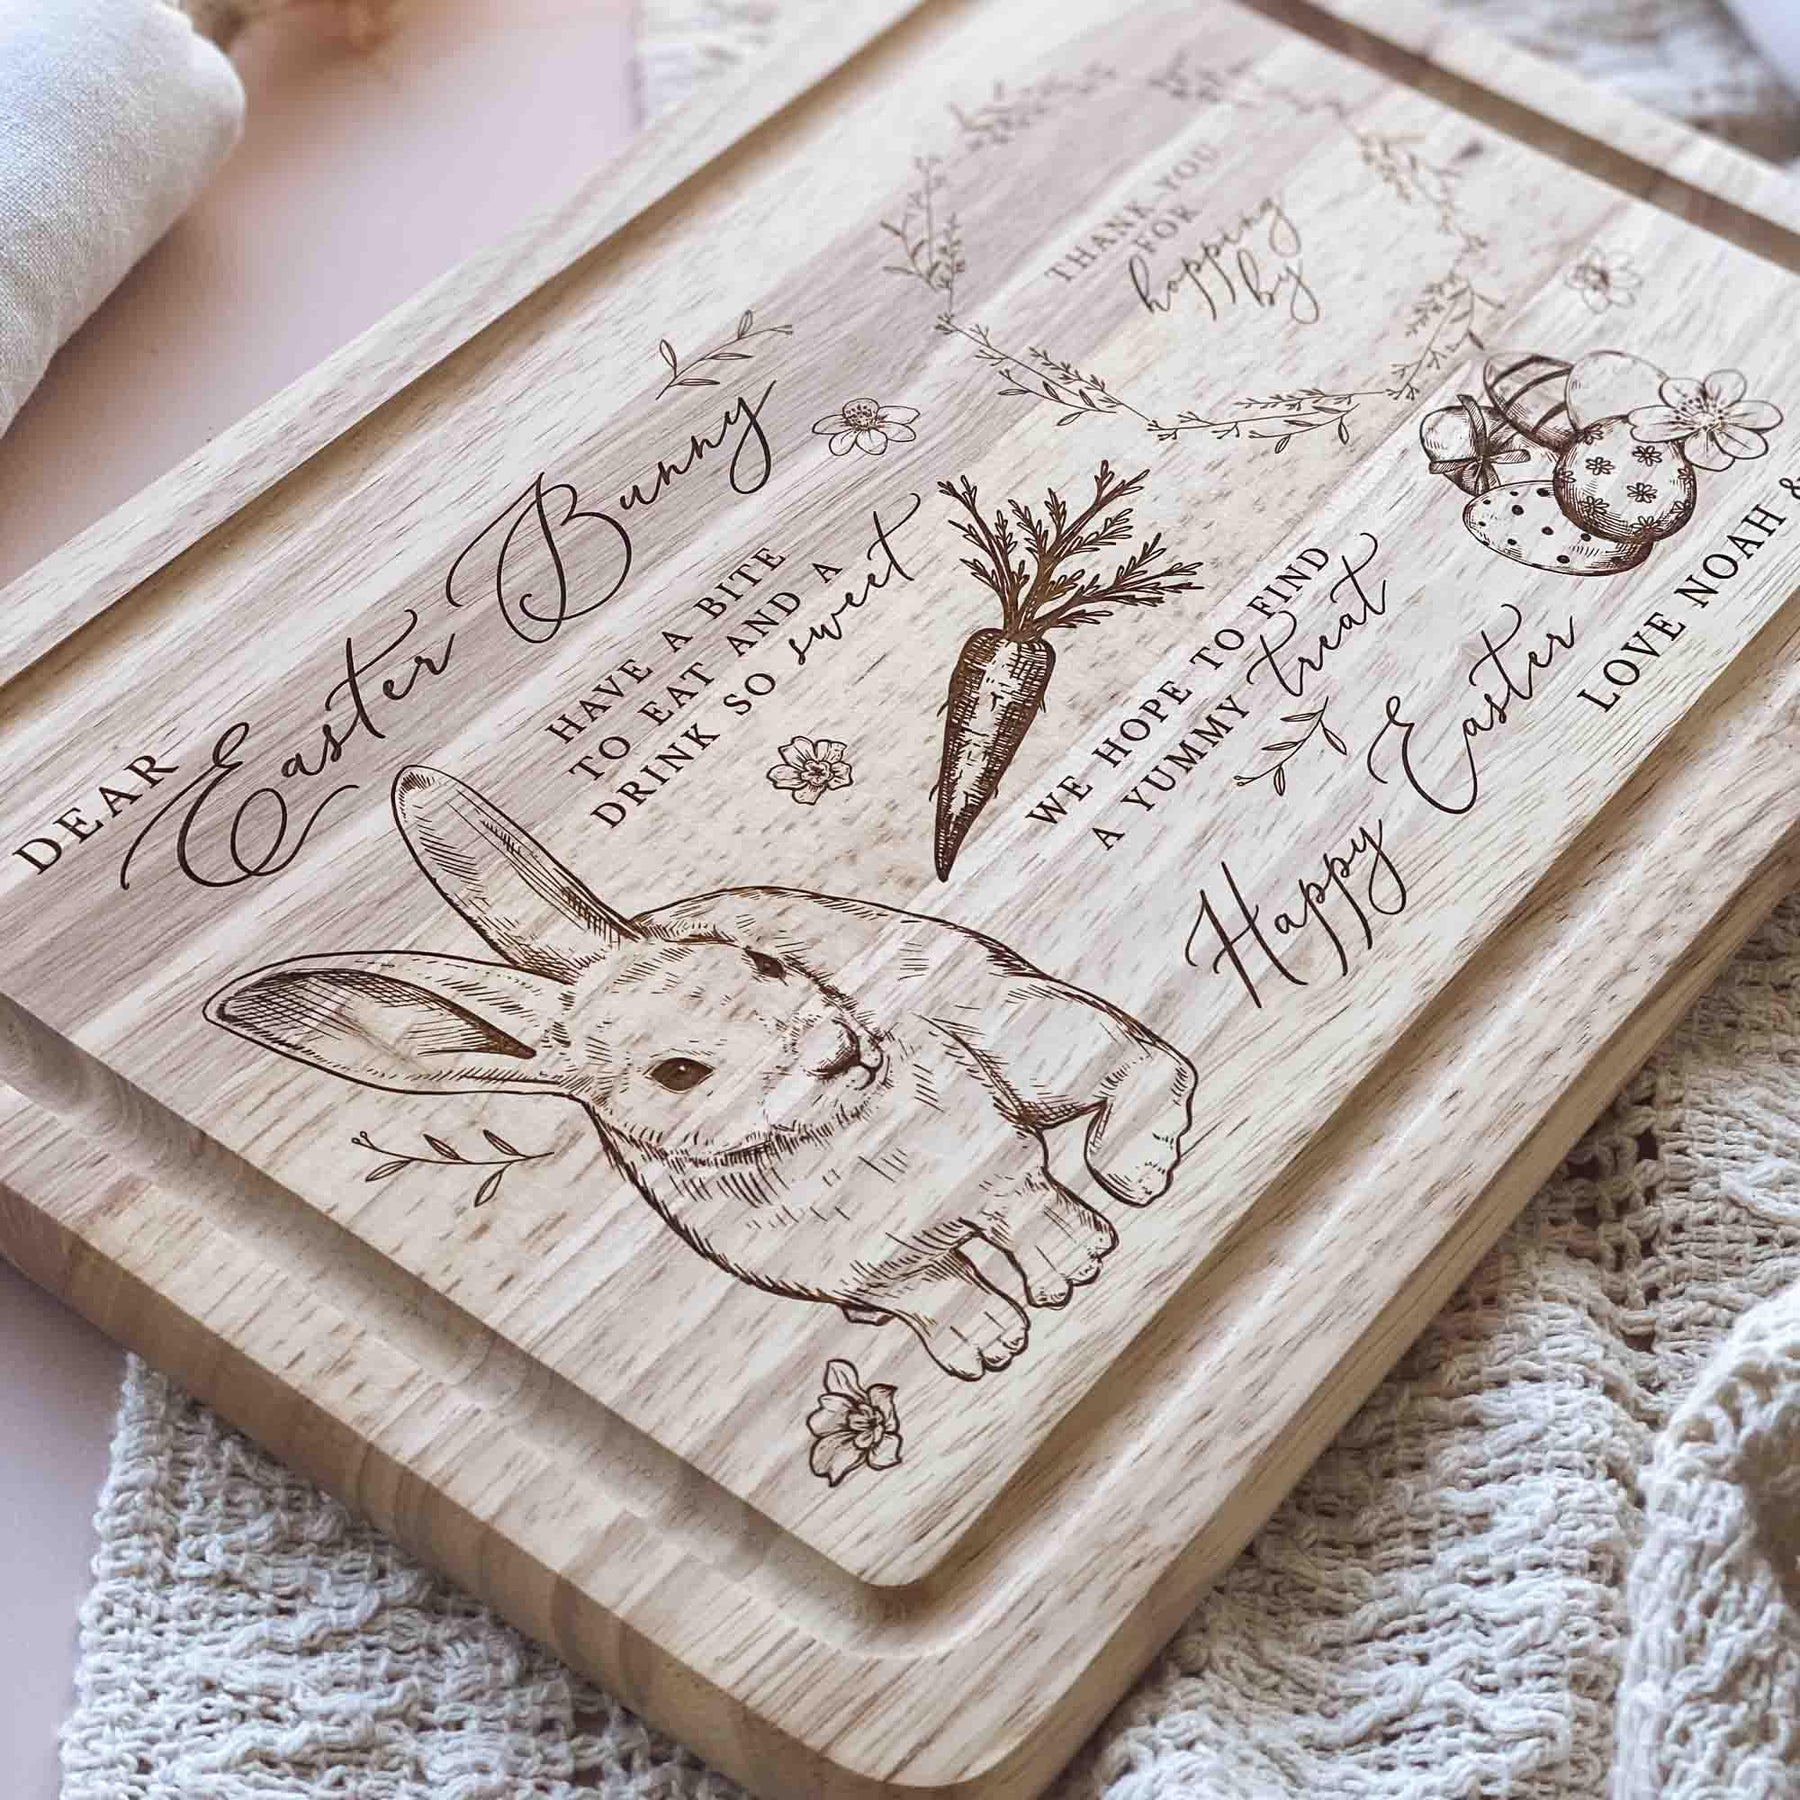 DEAR
Easter Bunny
HAVE A BITE
TO EAT AND A
DRINK SO sweet
THANK YOU
FOR
hopping
by
WE HOPE TO FIND
A YUMMY treat
Happy Easter
LOVE NOAH &